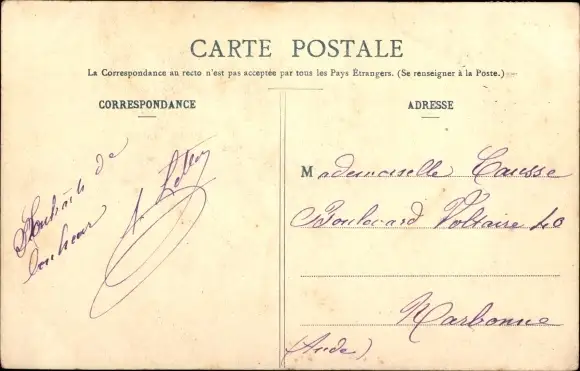 CARTE POSTALE
La Correspondance au recto n'est pas acceptée par tous les Pays Étrangers. (Se renseigner à la Poste.)
CORRESPONDANCE
Souhaits de
bonheur
ADRESSE
Mademoiselle Causse
Boulevard Voltaire 40
Narbonne
(Aude)